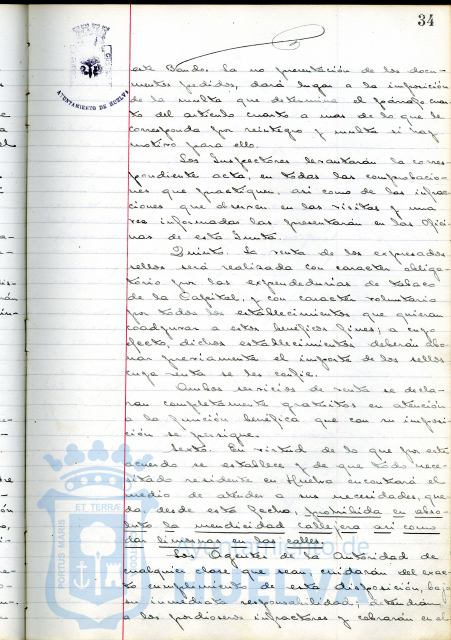 34
AYUNTAMIENTO DE HUELVA
este Bando. La no presentación de los docu-
mentos pedidos, dará lugar a la imposición
de la multa que determina el párrafo cuar-
to del artículo cuarto a mas de lo que le
corresponda por reintegro y multa si hay
motivo para ello.
Los Inspectores levantarán la corres-
pondiente acta, en todas las comprobacio-
nes que practiquen, asi como de las infrac-
ciones que observen en las visitas y una
vez informadas las presentarán en las Ofici-
nas de esta Junta.
Quinto. La venta de los expresados
sellos será realizada con caracter obliga-
torio por las expendedurias de tabaco
de la Capital, y con caracter voluntario
por todos los establecimientos que quieran
coadyuvar a estos benéficos fines; a cuyo
efecto, dichos establecimientos deberán abo-
nar previamente el importe de los sellos
cuya venta se les confie.
Ambos servicios de venta se decla-
ran completamente gratuitos en atención
a la función benéfica que con su imposi-
ción se persigue.
Sexto. En virtud de lo que por este
acuerdo se establece y de que todo nece-
sitado residente en Huelva encontrará el
medio de atender a sus necesidades, que-
da, desde esta fecha, prohibida en abso-
luto la mendicidad callejera asi como
dar limosnas en las calles.
Los Agentes de la Autoridad de
cualquier clase que sean, cuidarán del exac-
to cumplimiento de esta disposición, bajo
su inmediata responsabilidad; detendrán
a los pordioseros infractores y cobrarán en el
PORTUS MARIS
ET TERRA
Ayuntamiento de
HUELVA